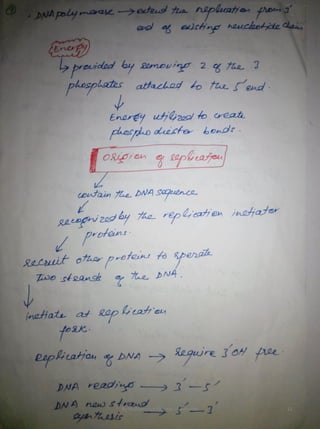 DNA polymerase → extend the replication from 3'
end of existing neucleotide chain
Energy
↳ provided by removing 2 of the 3
phosphates attached to the 5' end.
↓
Energy utilized to create
phospho diester bonds.
Origion of replication
contain the DNA sequence
recognized by the replication inetiator
proteins.
recruit other proteins to sperate
two strands of the DNA.
↓
inetiate at replication
fork.
Replication of DNA → Require 3'OH free.
DNA reading → 3' - 5'
DNA new strand → 5' - 3'
synthesis